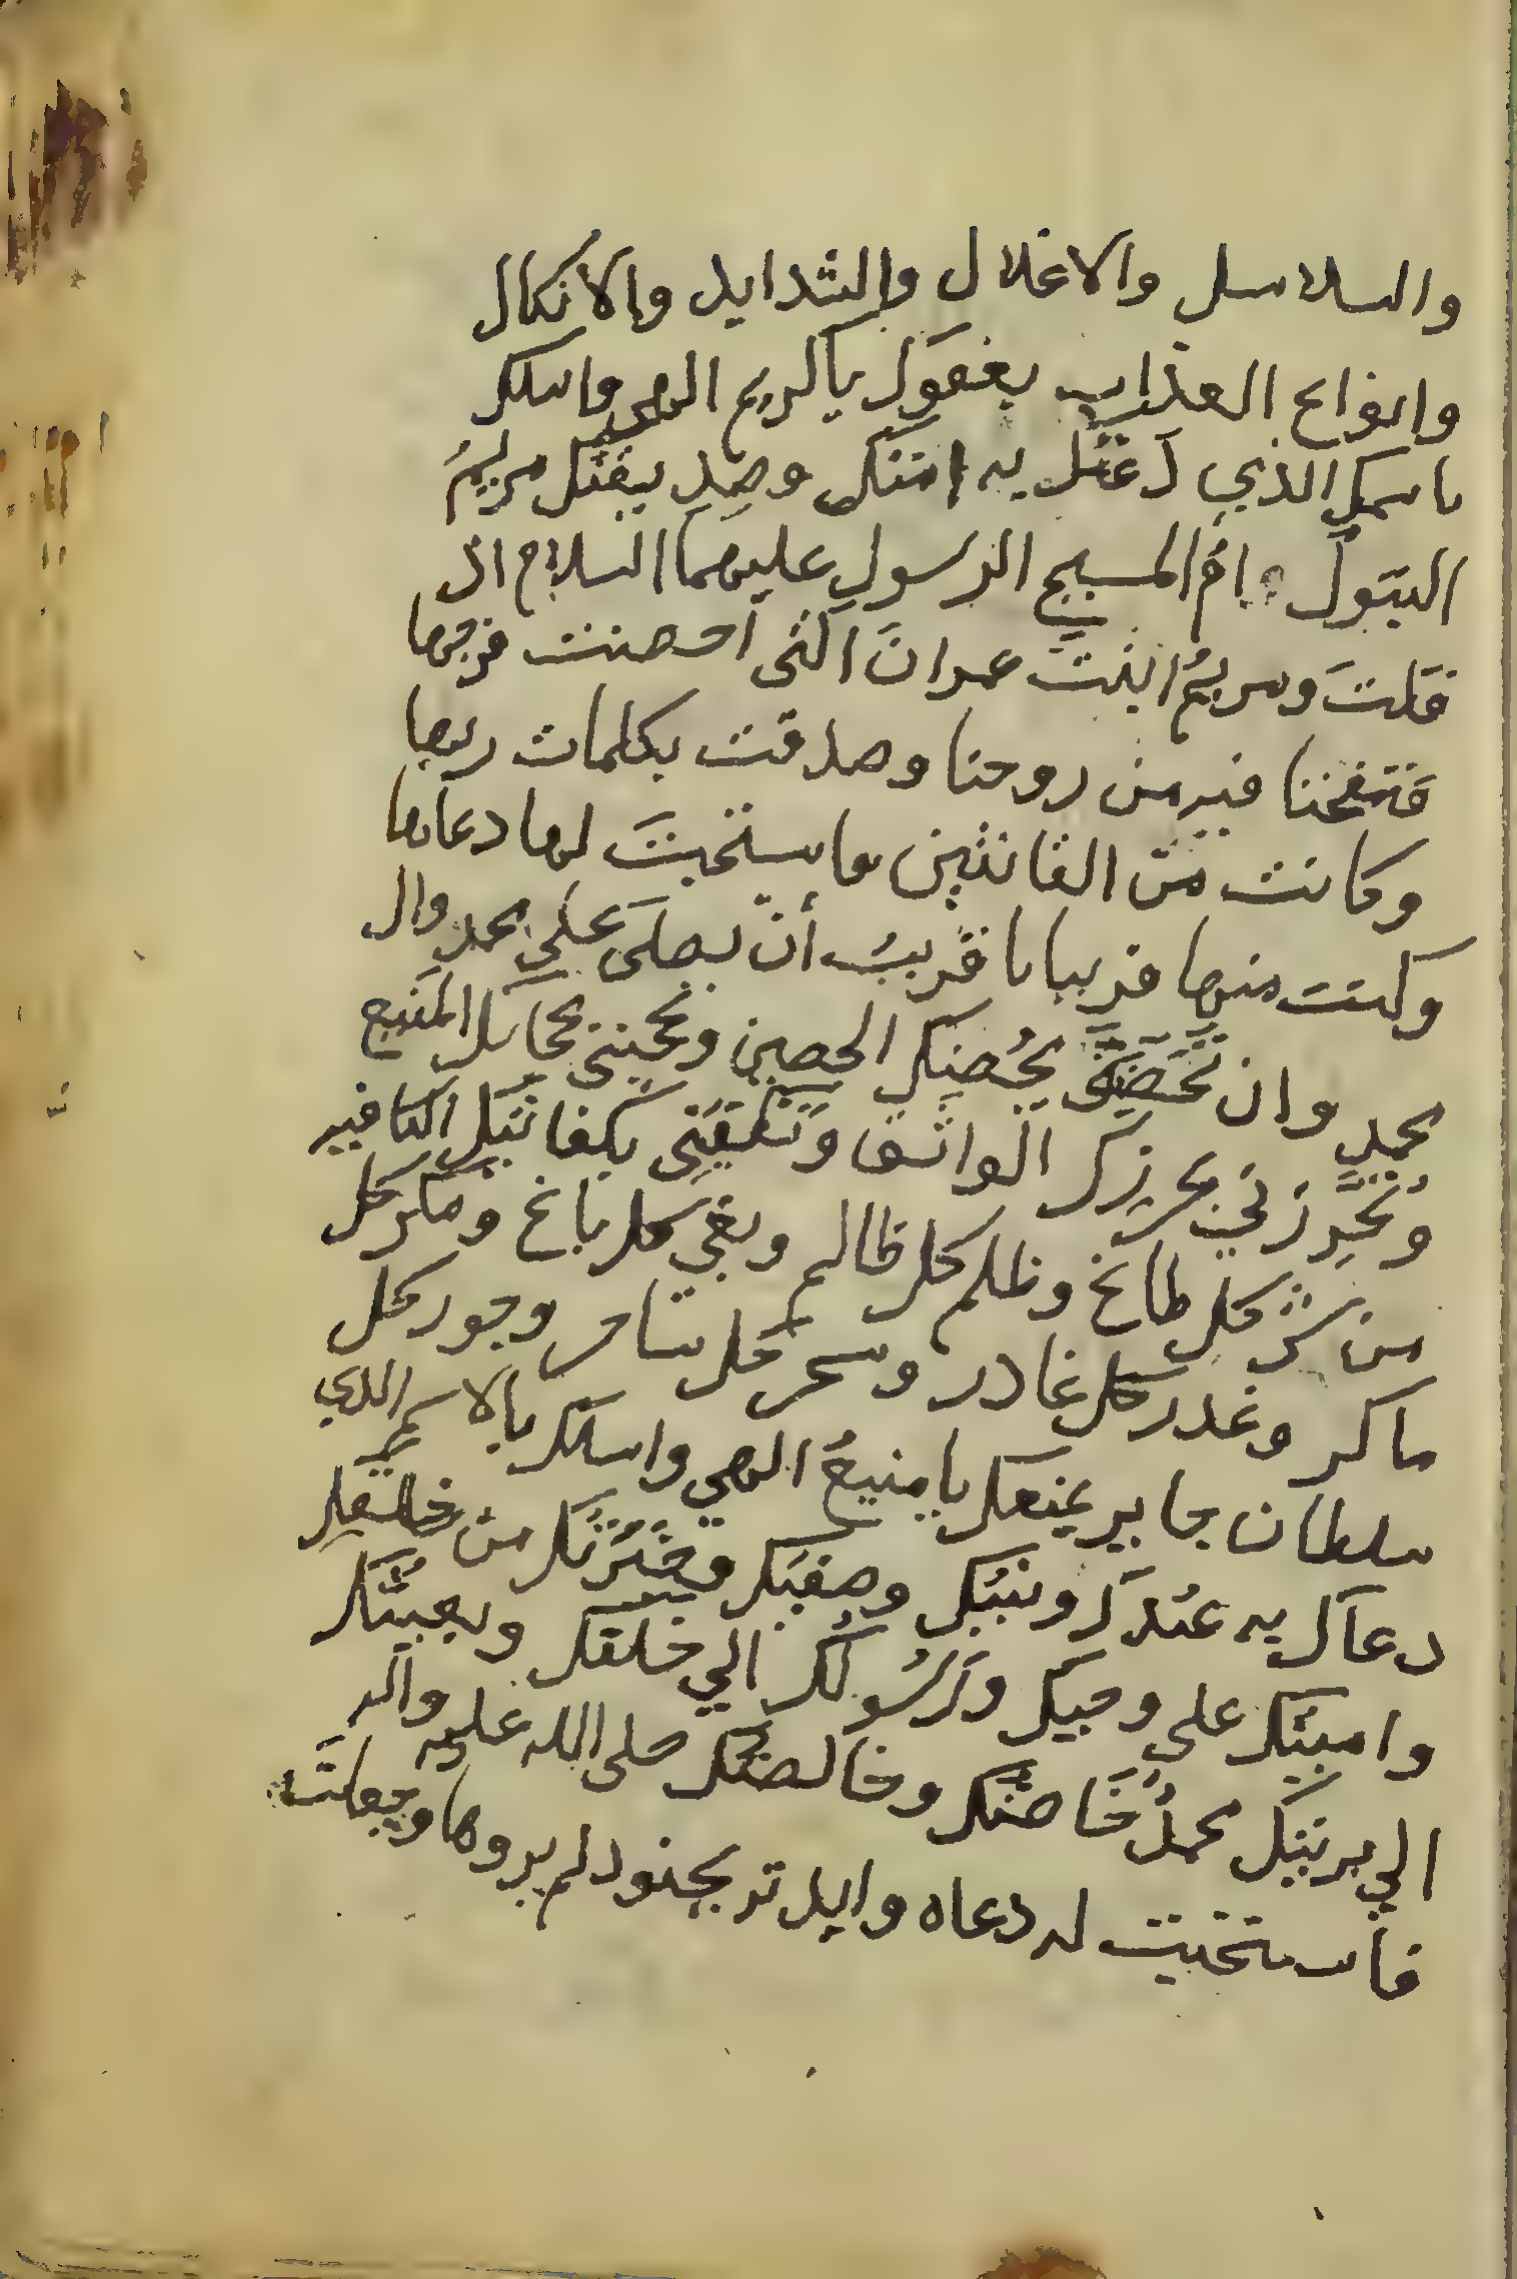 والسلاسل والاغلال والشدايد والانكال
وانواع العذاب بعفوك ياكريم الهي واسلك
باسمك الذي دعتك به امتك وصديقتك مريم
البتول ام المسيح الرسول عليهما السلام اذ
قلت ومريم ابنت عمران التى احصنت فرجها
فنفخنا فيه من روحنا وصدقت بكلمات ربها
وكانت من القانتين فاستجبت لها دعاها
وكنت منها قريبا يا قريب أن يصلى على محمد وال
محمد وان تحصني بحصنك الحصين وتحجبني بحجابك المنيع
وتحرزني بحرزك الواثق وتكفيني بكفايتك الكافيه
من شر كل طاغ وظلم كل ظالم وبغي كل باغ ومكر كل
ماكر وغدر كل غادر وسحر كل ساحر وجور كل
سلطان جاير بمنعك يا منيع الهي واسلك بالاسم الذي
دعاك به عبدك ونبيك وصفيك وخيرتك من خلقك
وامينك على وحيك ورسولك الي خلقك وبعيثك
الي بريتك محمد خاصتك وخالصتك صلى الله عليه واله
فاستجبت له دعاه وايدته بجنود لم يروها وجعلت